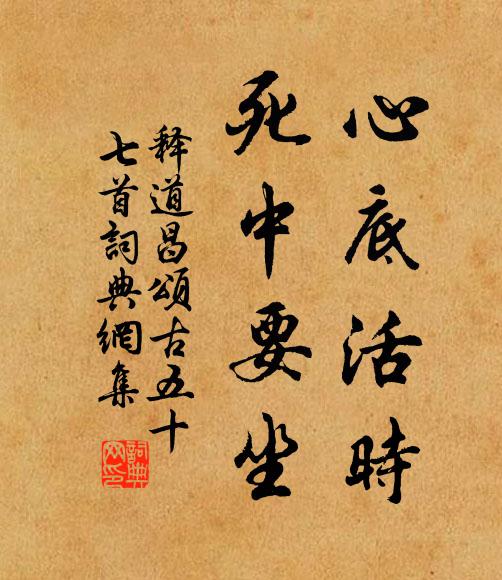 心底活時
死中要坐
釋道昌頌古五十
七首詞典網集
詞典
网印